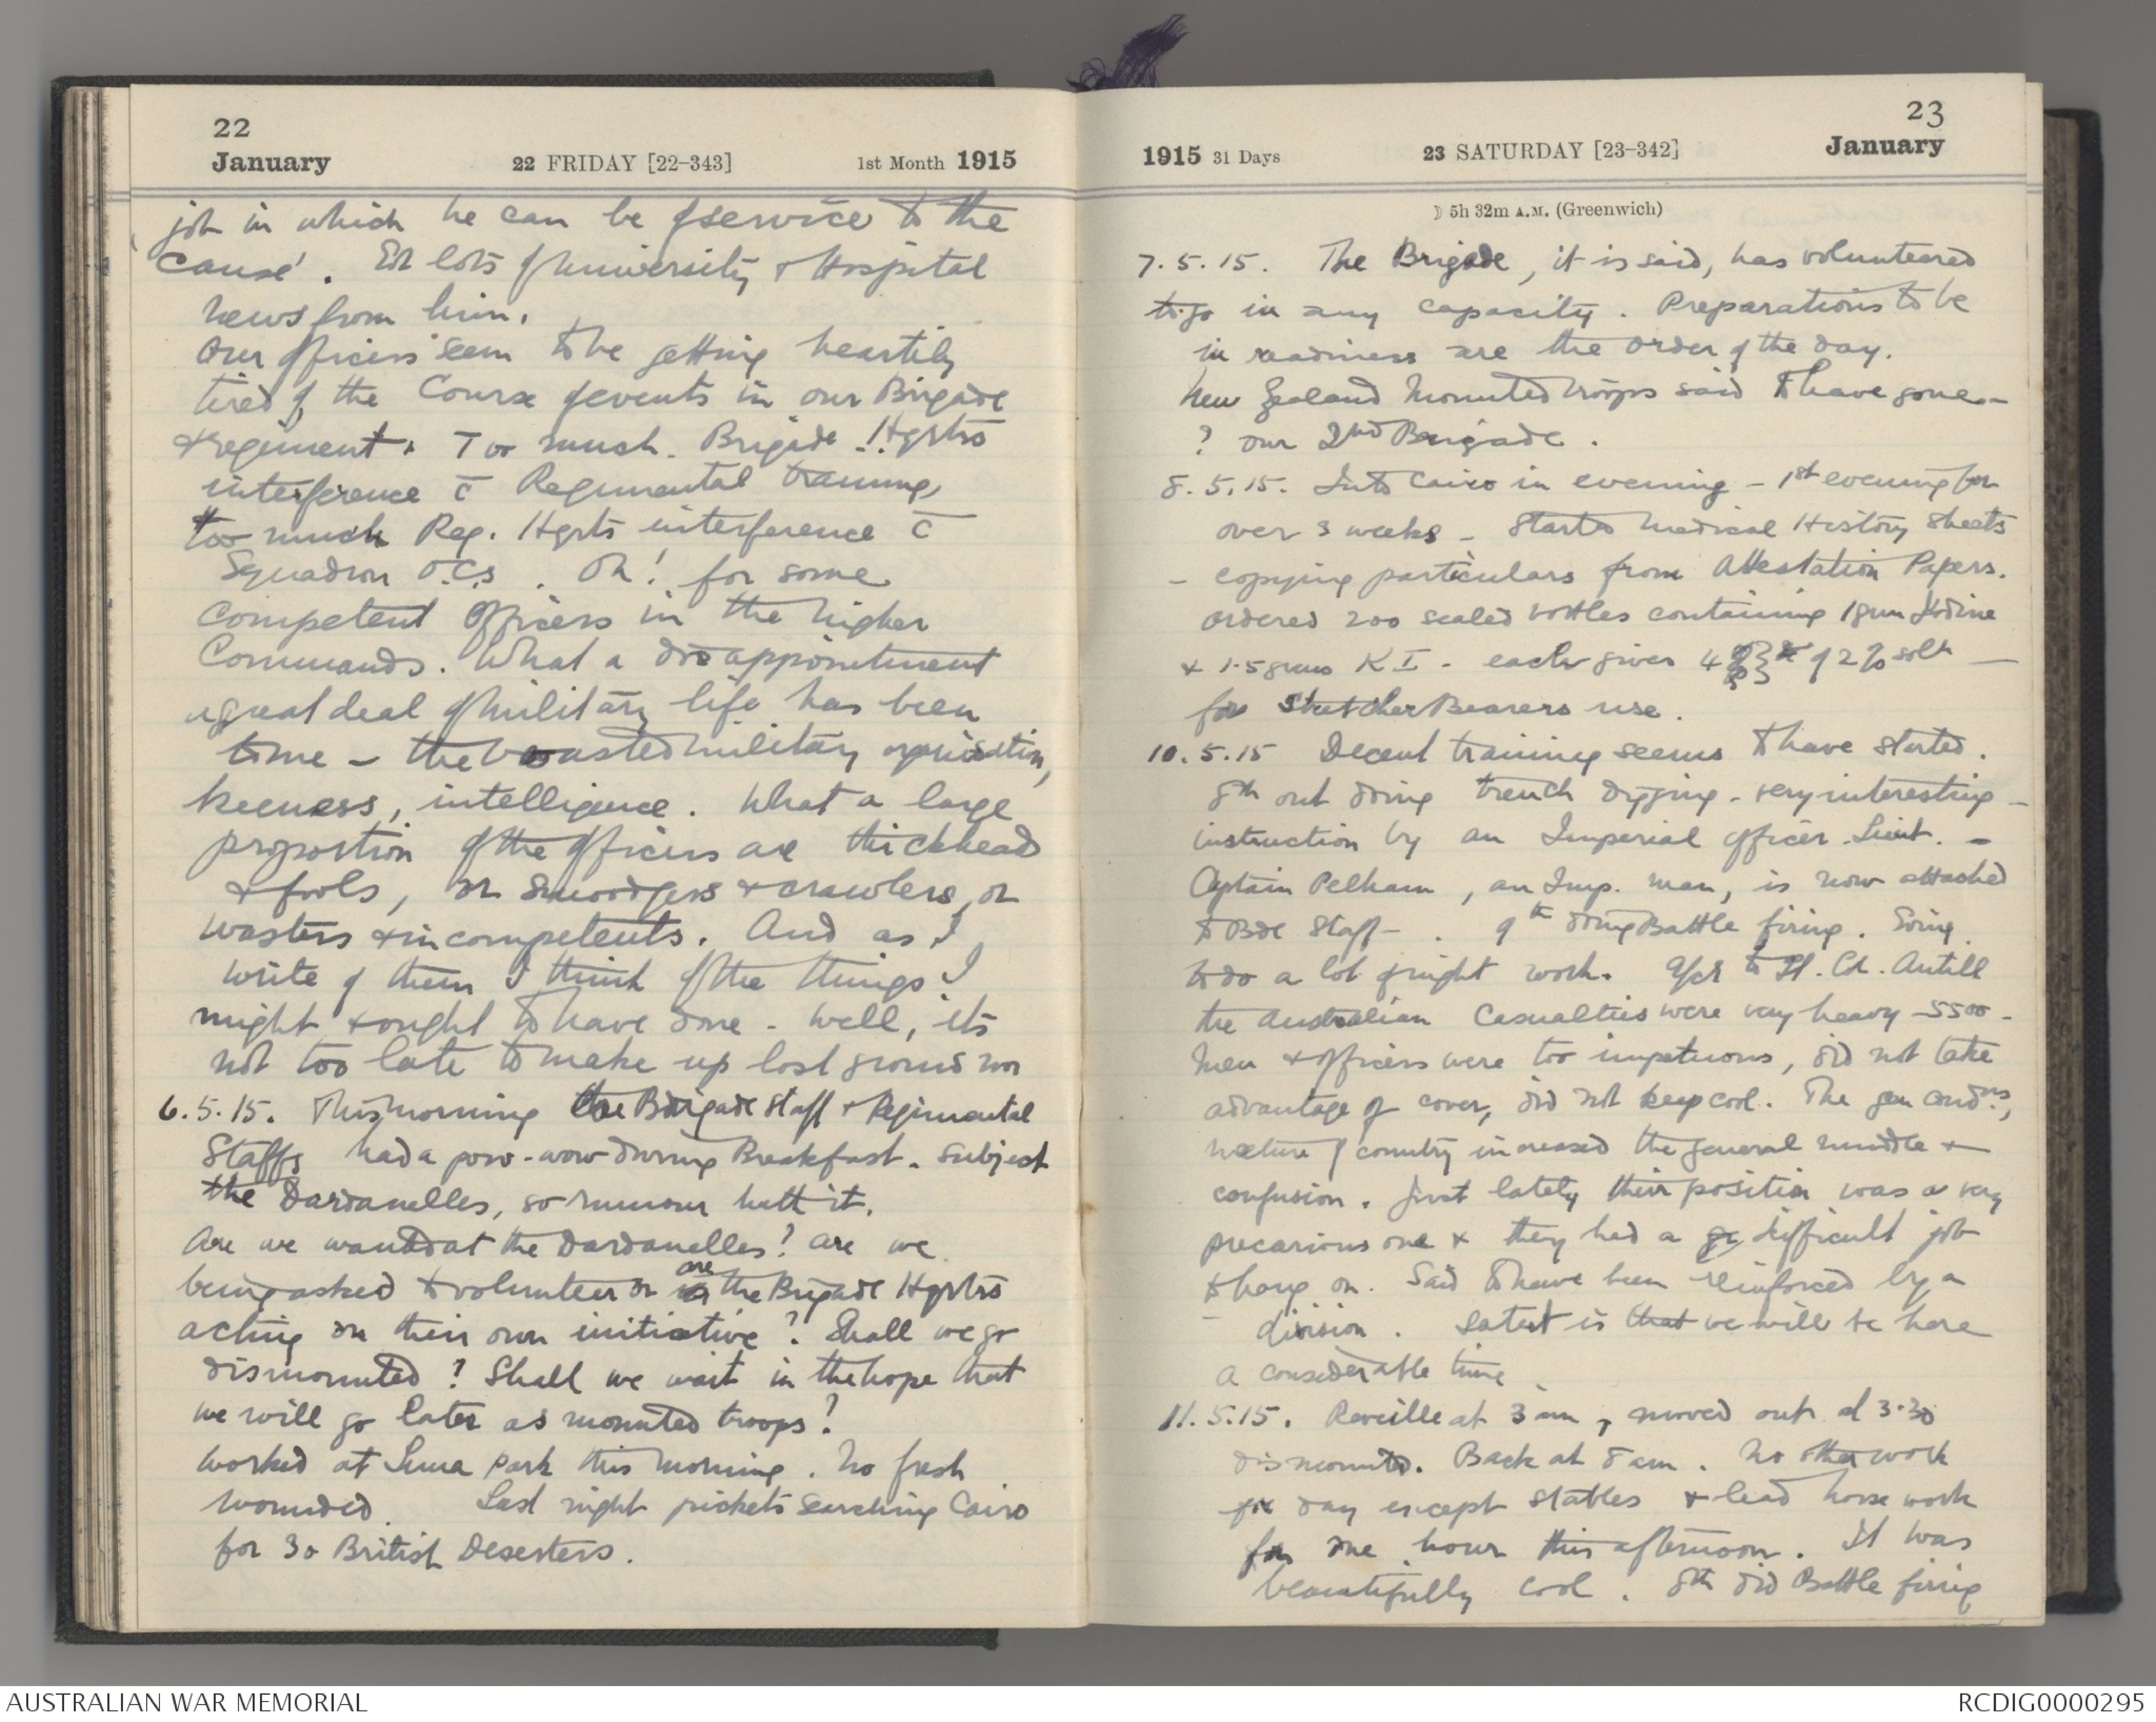 22
January 22 FRIDAY [22-343] 1st Month 1915
job in which he can be of service to the
'cause'. Got lots of University & Hospital
news from him.
Our officers seem to be getting heartily
tired of the course of events in our Brigade
& regiment. Too much Brigade Hqrtrs
interference c̄ Regimental training,
too much Reg. Hqrts interference c̄
Squadron O.C.s. Oh! for some
competent officers in the higher
Commands. What a disappointment
a great deal of military life has been
to me - the boasted military organisation,
keenness, intelligence. What a large
proportion of the officers are thickheads
& fools, or smoodgers & crawlers, or
wasters & incompetents. And as I
write of them I think of the things I
might & ought to have done - well, its
not too late to make up lost ground now
6.5.15. This morning the Brigade staff & Regimental
Staffs had a pow-wow during Breakfast. Subject
the Dardanelles, so rumour hath it.
Are we wanted at the Dardanelles? Are we
being asked to volunteer or are the Brigade Hqrtrs
acting on their own initiative? Shall we go
dismounted? Shall we wait in the hope that
we will go later as mounted troops?
Worked at Luna Park this morning. No fresh
wounded. Last night pickets searching Cairo
for 30 British Deserters.
23
1915 31 Days 23 SATURDAY [23-342] January
☽ 5h 32m A.M. (Greenwich)
7.5.15. The Brigade, it is said, has volunteered
to go in any capacity. Preparations to be
in readiness are the order of the day.
New Zealand Mounted troops said to have gone -
? our 2nd Brigade.
8.5.15. Into Cairo in evening - 1st evening for
over 3 weeks - Started Medical History Sheets
- copying particulars from Attestation Papers.
Ordered 200 sealed bottles containing 1 gm Iodine
& 1.5 grms KI - each gives 4 of 2% soltn -
for Stretcher Bearers use.
10.5.15 Decent training seems to have started.
8th out doing trench digging - very interesting -
instruction by an Imperial officer Lieut. -
Captain Pelham, an Imp. man, is now attached
to Bde Staff - . 9th doing Battle firing. Going
to do a lot of night work. Acc to Lt. Col. Antill
the Australian Casualties were very heavy - 5500 -
Men & officers were too impetuous, did not take
advantage of cover, did not keep cool. The gen condns,
nature of country increased the general muddle &
confusion. Just lately their position was a very
precarious one & they had a difficult job
to hang on. Said to have been reinforced by a
division. Latest is that we will be here
a considerable time.
11.5.15. Reveille at 3 am, moved out at 3.30
dismounted. Back at 8 am. No other work
for day except stables & lead horse work
for one hour this afternoon. It was
beautifully cool. 8th did Battle firing
AUSTRALIAN WAR MEMORIAL RCDIG0000295